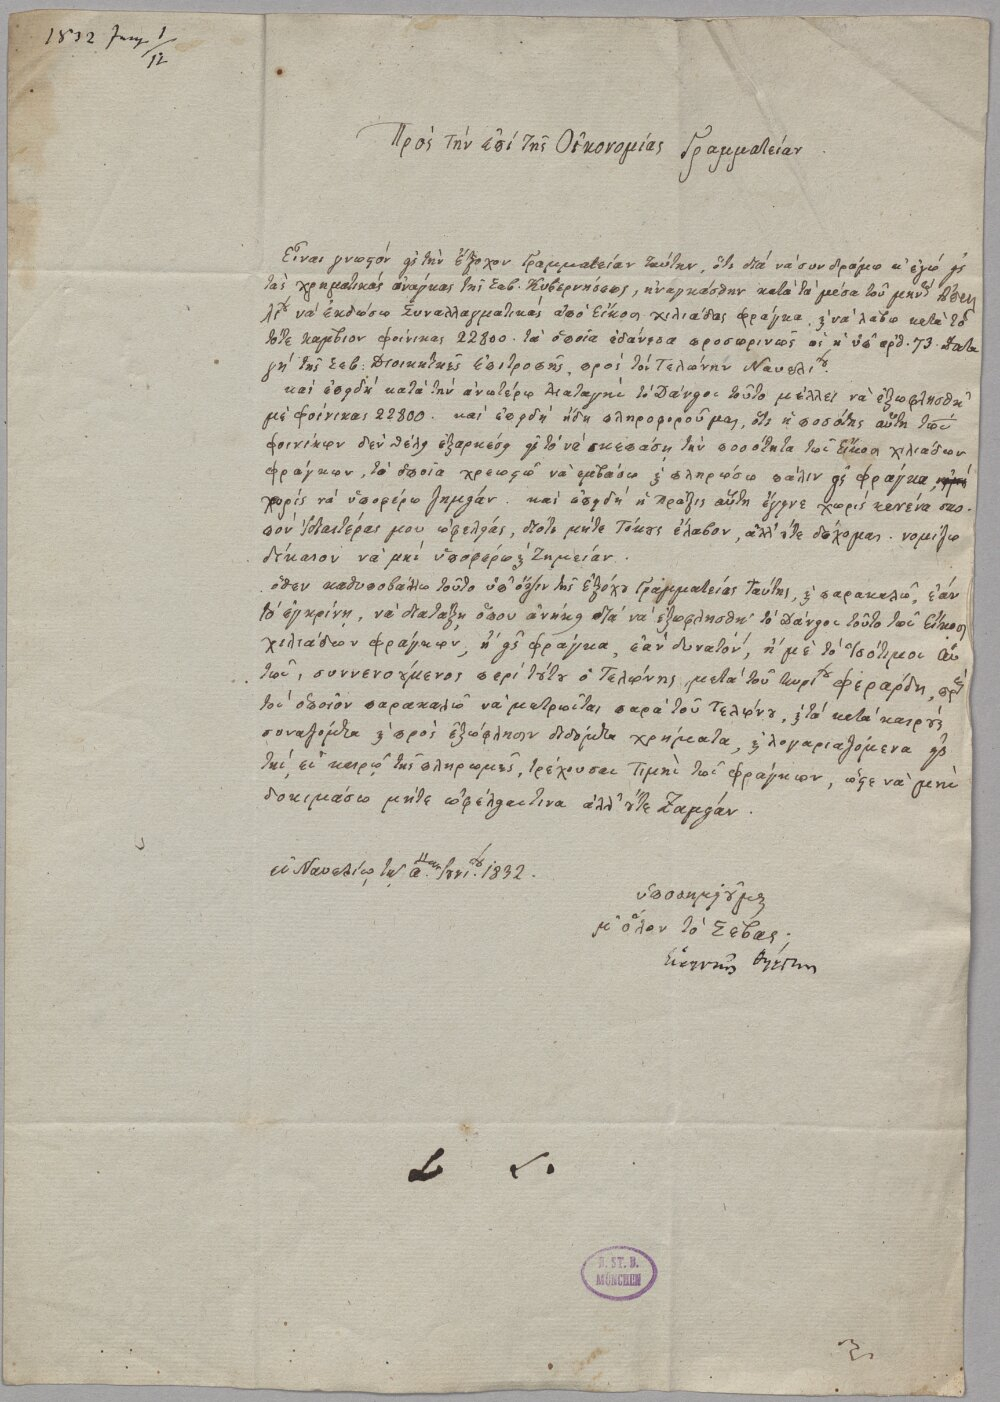 1832 Juny 1/12
Πρὸς τὴν ἐπὶ τῆς Οἰκονομίας Γραμματείαν.
Εἶναι γνωστὸν εἰς τὴν ἔξοχον Γραμματείαν ταύτην, ὅτι διὰ νὰ συνδράμω κ' ἐγὼ εἰς
τὰς χρηματικὰς ἀνάγκας τῆς Σεβ. Κυβερνήσεως, ἠναγκάσθην κατὰ τὰ μέσα τοῦ μηνὸς
νὰ ἐκδώσω Συναλλαγματικὰς ἀπὸ Εἴκοσι χιλιάδας φράγκα, καὶ νὰ λάβω κατὰ τὸ
τότε κάμβιον φοίνικας 22800. τὰ ὁποῖα ἐδάνεισα προσωρινῶς ὑπ' ἀρθ. 73 Διατα
γὴ τῆς Σεβ: Διοικητικῆς Ἐπιτροπῆς, πρὸς τὸν Τελώνην Ναυπλίου.
καὶ ἐπειδὴ κατὰ τὴν ἀνωτέρω Διαταγὴν τὸ Δάνειον τοῦτο μέλλει νὰ ἐξωφλησθῇ
μὲ φοίνικας 22800. καὶ ἐπειδὴ ἤδη πληροφοροῦμαι, ὅτι ἡ ποσότης αὕτη τῶν
φοινίκων δὲν θέλει ἐξαρκέσει εἰς τὸ νὰ σκεπάσῃ τὴν ποσότητα τῶν Εἴκοσι χιλιάδων
φράγκων, τὰ ὁποῖα χρεωστῶ νὰ ἐμβάσω καὶ πληρώσω πάλιν εἰς φράγκα,
χωρὶς νὰ ὑποφέρω ζημίαν. καὶ ἐπειδὴ ἡ πρᾶξις αὕτη ἔγεινε χωρὶς κανένα σκο-
πὸν ἰδιαιτέρας μου ὠφελείας, διότι μήτε τόκους ἔλαβον, ἀλλ' οὔτε δέχομαι. νομίζω
δίκαιον νὰ μὴ ὑποφέρω καὶ ζημείαν.
ὅθεν καθυποβάλλω τοῦτο ὑπ' ὄψιν τῆς ἐξόχου Γραμματείας ταύτης, καὶ παρακαλῶ, ἐὰν
τὸ ἐγκρίνῃ, νὰ διατάξῃ ὅπου ἀνήκει διὰ νὰ ἐξωφλησθῇ τὸ Δάνειον τοῦτο τῶν Εἴκοσι
χιλιάδων φράγκων, ἢ εἰς φράγκα, ἐὰν δυνατόν, ἢ μὲ τὸ ἰσότιμον αὐ
τῶν, συννενούμενος περὶ τούτου ὁ Τελώνης μετὰ τοῦ κυρίου Φεράρδη, πρὸς
τὸν ὁποῖον παρακαλῶ νὰ μετρῶνται παρὰ τοῦ Τελώνου, καὶ τὰ κατὰ καιροὺς
συναζόμενα καὶ πρὸς ἐξώφλησιν διδόμενα χρήματα, καὶ λογαριαζόμενα εἰς
τὴν ἐν καιρῷ τῆς πληρωμῆς, τρέχουσαν τιμὴν τῶν φράγκων, ὥστε νὰ μὴν
δοκιμάσω μήτε ὠφέλειάν τινα ἀλλ' οὔτε ζημίαν.
ἐν Ναυπλίῳ τὴν α: Ἰουνίου. 1832.
ὑποσημειοῦμαι
μ' ὅλον τὸ Σέβας.
B. ST. B.
MÜNCHEN